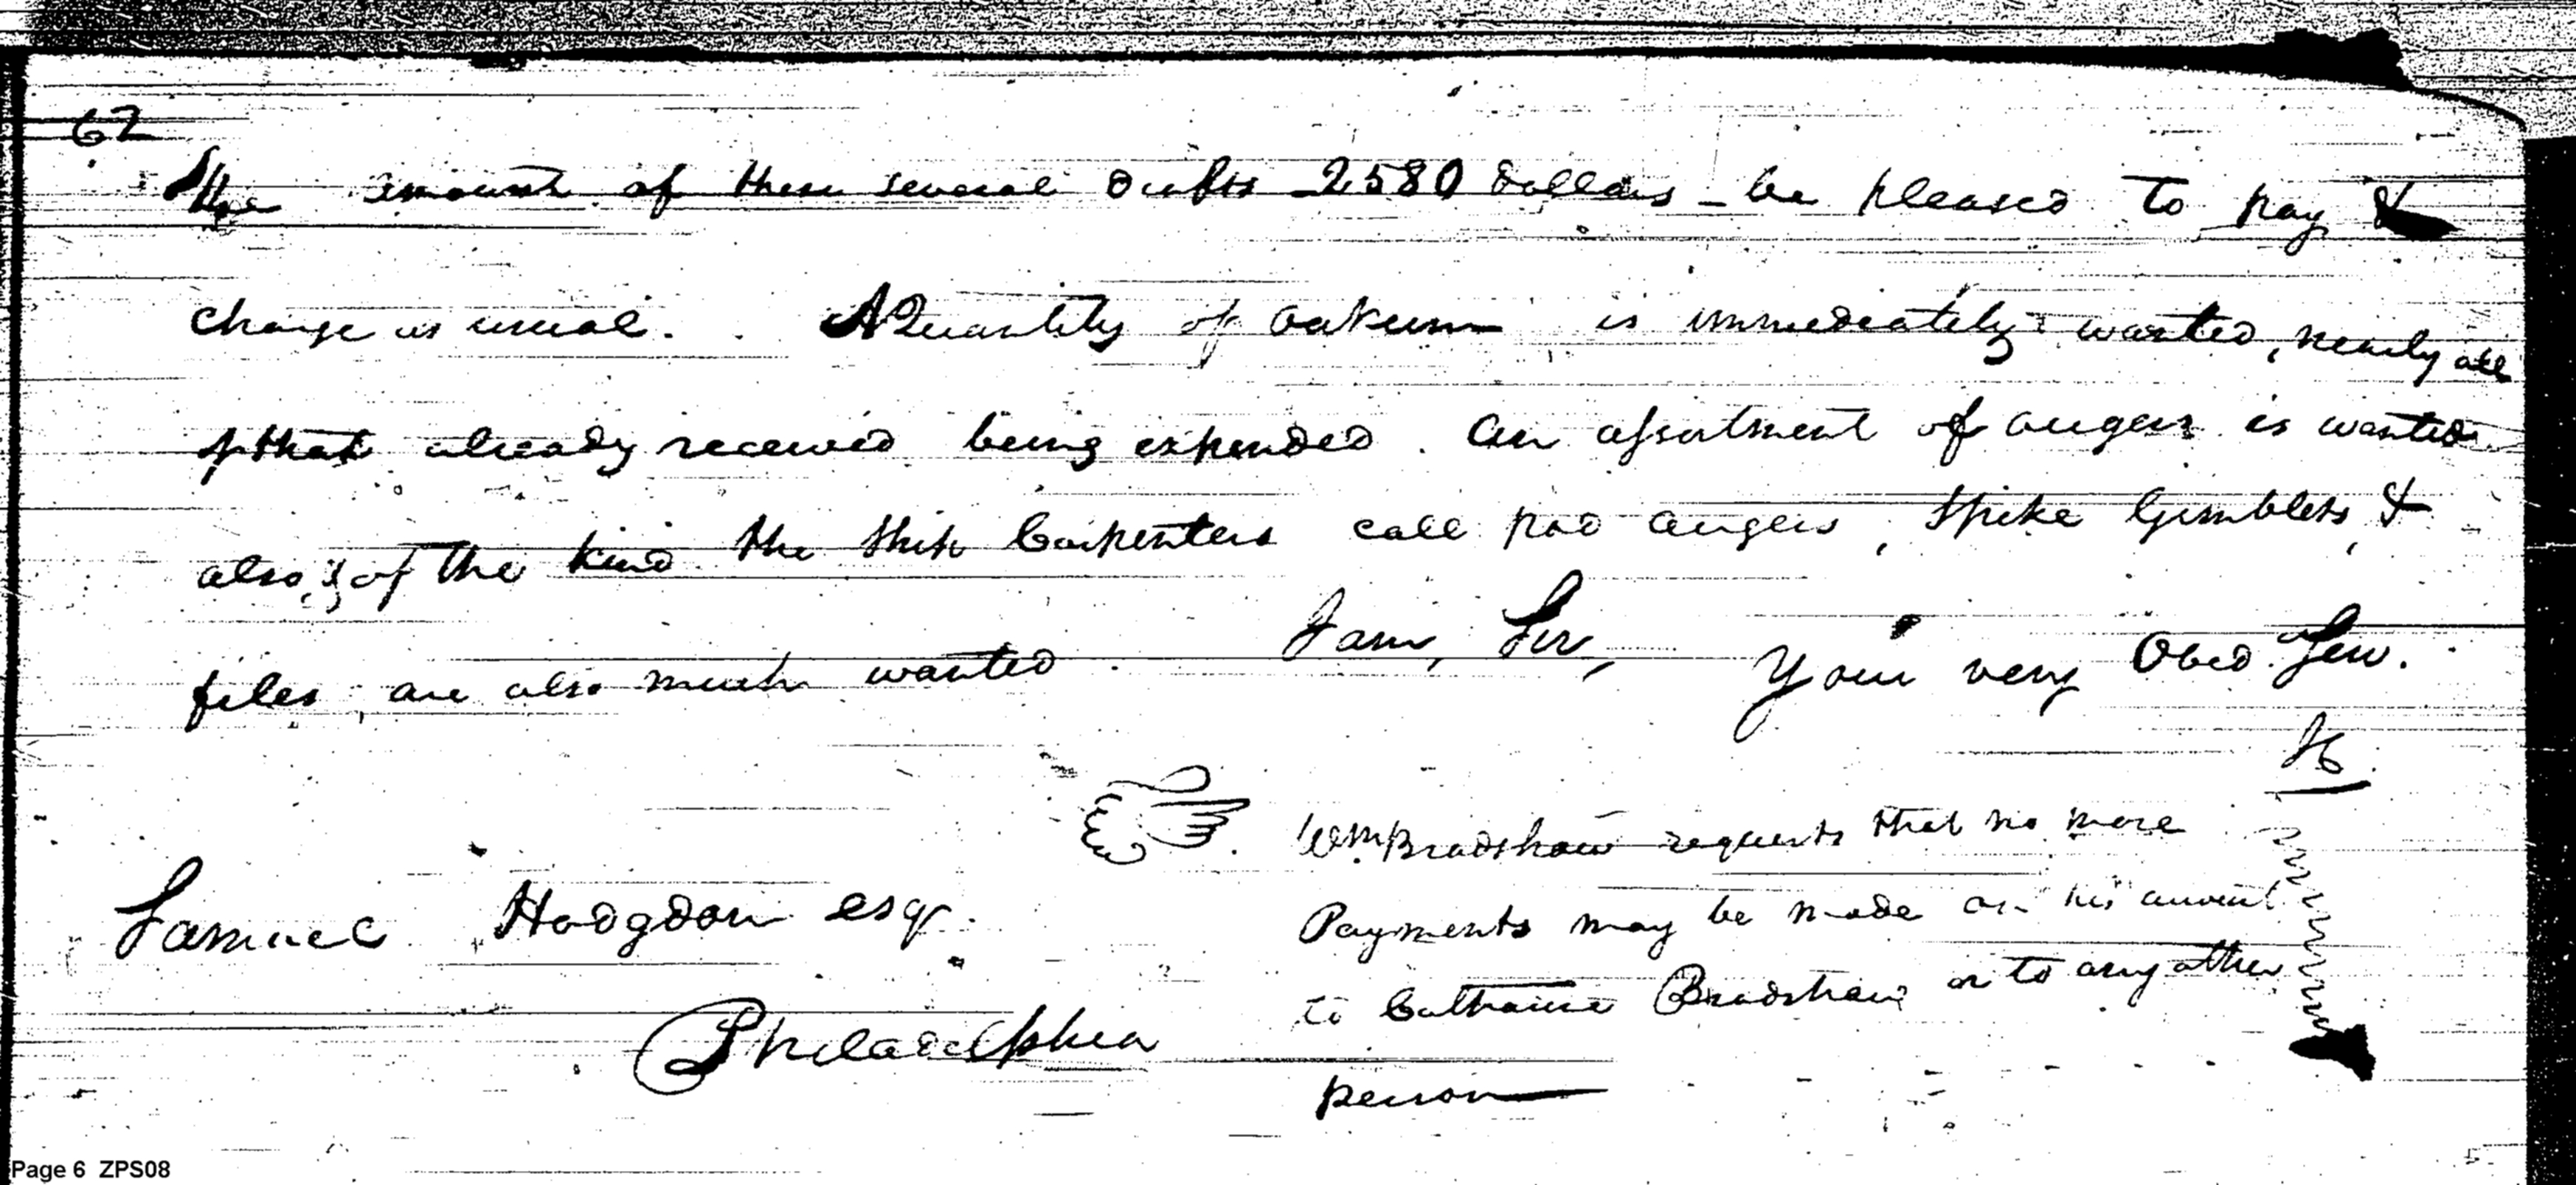 62
The amount of these several drafts 2580 dollars - be pleased to pay &
charge as usual. A Quantity of oakum is immediately wanted, nearly all
of that already received being expended. An assortment of augers is wanted
also, & of the kind the Ship Carpenters call pod augers, Spike Gimblets, &
files, are also much wanted. I am, Sir, Your very Obed. Serv.
JH
Wm. Bradshaw requests that no more
Payments may be made on his account
to Catharine Bradshaw or to any other
person
Samuel Hodgdon esqr.
Philadelphia
Page 6 ZPS08